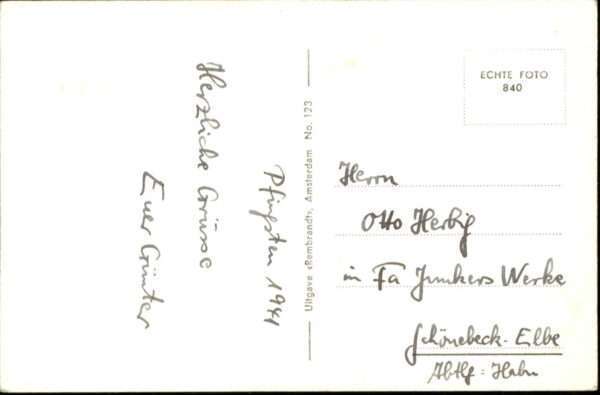 Pfingsten 1941
Herzliche Grüsse
Euer Günter
Uitgave «Rembrandt», Amsterdam No. 123
ECHTE FOTO
840
Herrn
Otto Herbig
in Fa Junkers Werke
Schönebeck-Elbe
Abtlg: Habu